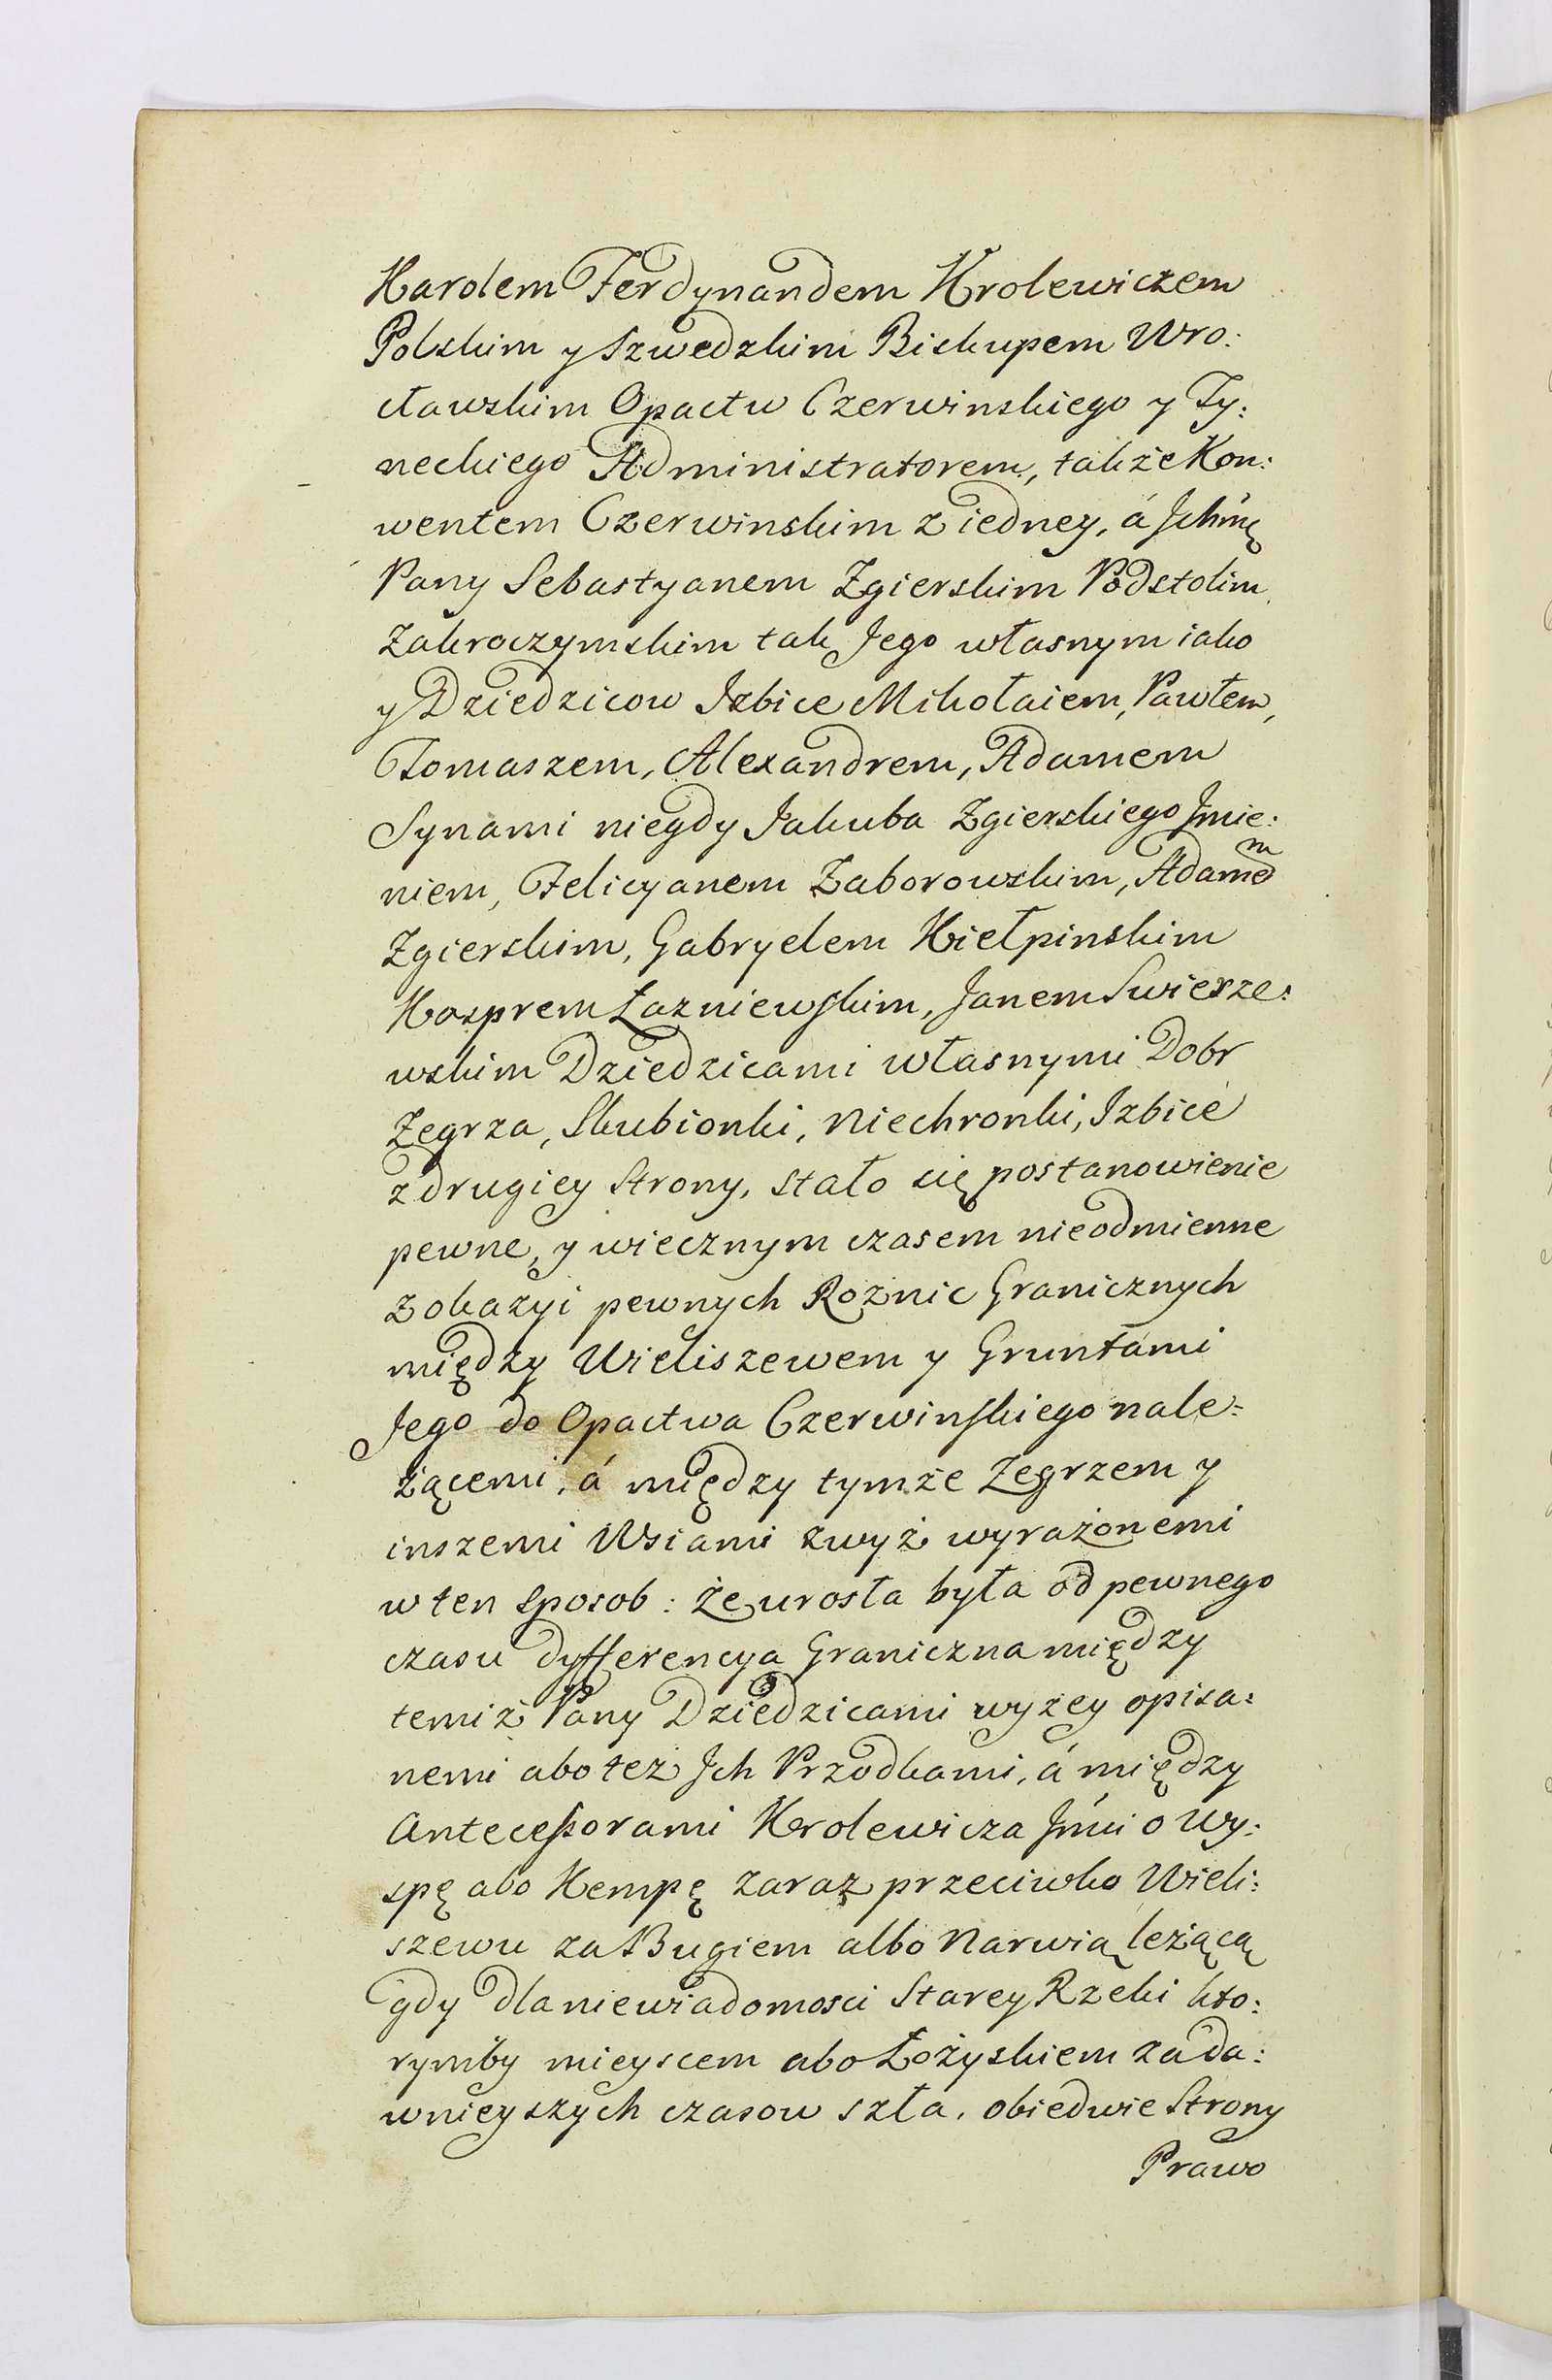 Karolem Ferdynandem Krolewiczem
Polskim y Szwedzkim Biskupem Wro:
cławskim Opactw Czerwinskiego y Ty:
neckiego Administratorem, takze Kon:
wentem Czerwinskim z iedney, á Ichmę
Pany Sebastyanem Zgierskim Podstolim
Zakroczymskim tak Jego własnym iako
y Dziedzicow Izbice Mikołaiem, Pawłem,
Tomaszem, Alexandrem, Adamem
Synami niegdy Jakuba Zgierskiego Jmie:
niem, Felicyanem Zaborowskim, Adamem
Zgierskim, Gabryelem Kiełpinskim
Kasprem Łazniewskim, Janem Swiesze:
wskim Dziedzicami własnymi Dobr
Zegrza, Skubionki, Niechronki, Izbice
z drugiey Strony, stało się postanowienie
pewne, y wiecznym czasem nieodmienne
z okazyi pewnych Roznic Granicznych
między Wieliszewem y Gruntami
Jego do Opactwa Czerwinskiego nale=
żącemi, á między tymże Zegrzem y
inszemi Wsiami zwyż wyrażonemi
w ten sposob: że urosła była od pewnego
czasu dyfferencya Graniczna między
temiż Pany Dziedzicami wyzey opisa:
nemi abo tez Jch Przodkami, á między
Antecessorami Krolewicza Jmci o Wy:
spę abo Kempę zaraz przeciwko Wieli:
szewu za Bugiem albo Narwią leżącą
gdy dla niewiadomosci Starey Rzeki kto:
rymby mieyscem abo Łożyskiem za da:
wnieyszych czasow szła, obiedwie Strony
Prawo